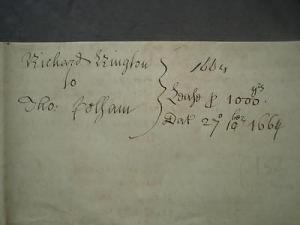 Richard Kington
to
Tho: Pelham
1664
Lease p 1000 yrs
Dat 27° 10ber 1664